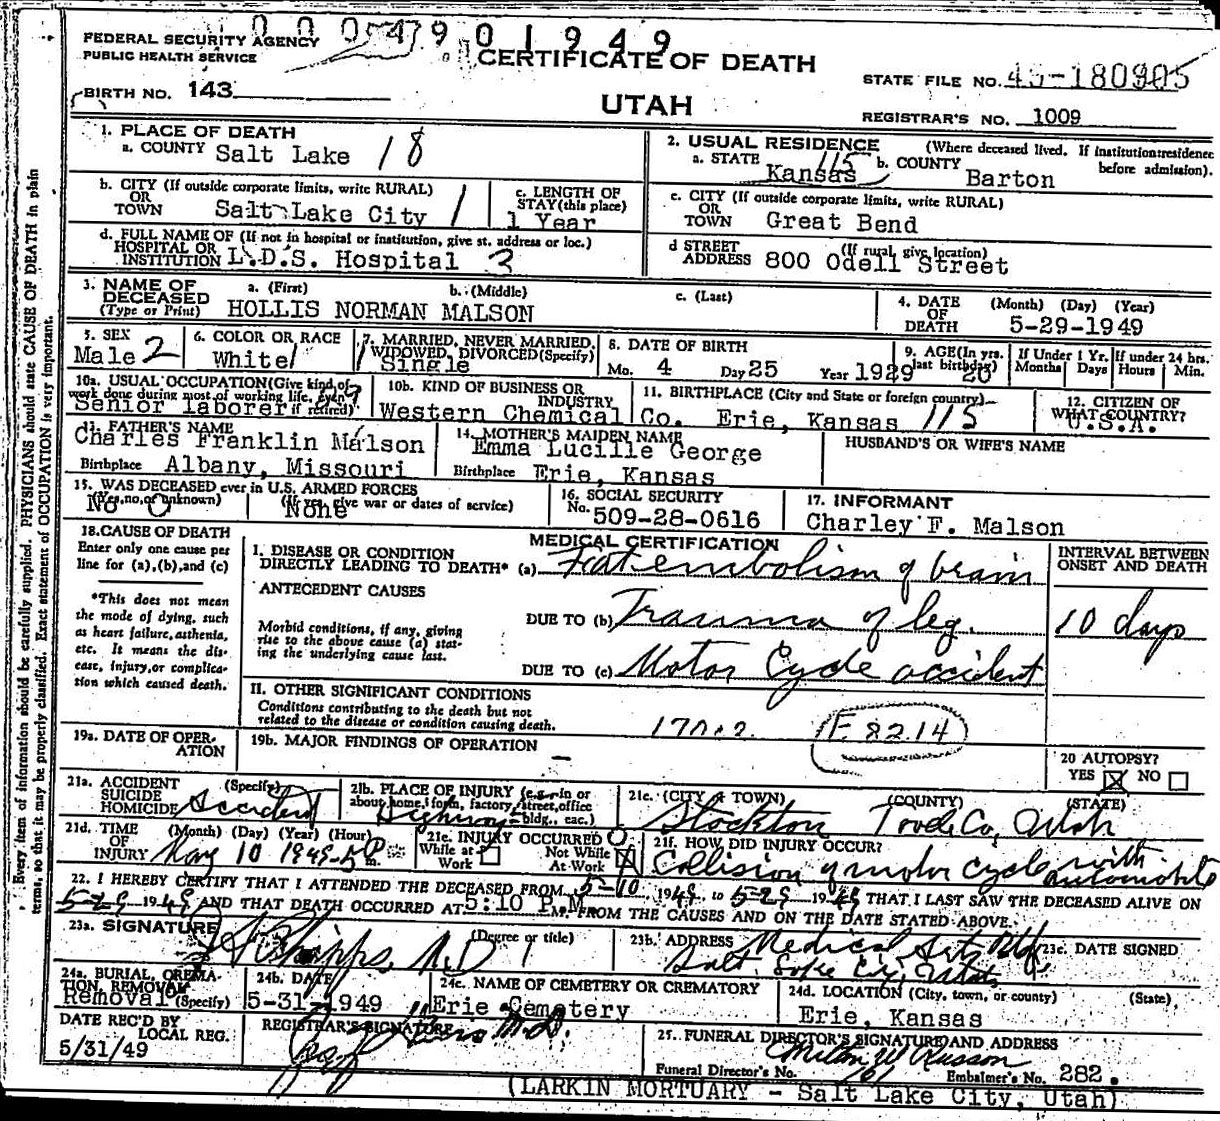 0 0 0 5 4 7 9 0 1 9 4 9
FEDERAL SECURITY AGENCY
PUBLIC HEALTH SERVICE
CERTIFICATE OF DEATH
STATE FILE NO. 45-180905
BIRTH NO. 143
UTAH
REGISTRAR'S NO. 1009
1. PLACE OF DEATH
a. COUNTY Salt Lake 18
2. USUAL RESIDENCE (Where deceased lived. If institution: residence before admission).
a. STATE Kansas 115 b. COUNTY Barton
b. CITY (If outside corporate limits, write RURAL)
OR
TOWN Salt Lake City 1
c. LENGTH OF
STAY (this place)
1 Year
c. CITY (If outside corporate limits, write RURAL)
OR
TOWN Great Bend
d. FULL NAME OF (If not in hospital or institution, give st. address or loc.)
HOSPITAL OR
INSTITUTION L.D.S. Hospital 3
d STREET (If rural, give location)
ADDRESS 800 Odell Street
3. NAME OF DECEASED (Type or Print)
a. (First) b. (Middle) c. (Last)
HOLLIS NORMAN MALSON
4. DATE OF DEATH (Month) (Day) (Year)
5-29-1949
5. SEX
Male 2
6. COLOR OR RACE
White 1
7. MARRIED, NEVER MARRIED, WIDOWED, DIVORCED (Specify)
Single
8. DATE OF BIRTH
Mo. 4 Day 25 Year 1929
9. AGE (In yrs. last birthday) 20
If Under 1 Yr. Months Days
If under 24 hrs. Hours Min.
10a. USUAL OCCUPATION (Give kind of work done during most of working life, even if retired)
Senior laborer
10b. KIND OF BUSINESS OR INDUSTRY
Western Chemical Co.
11. BIRTHPLACE (City and State or foreign country)
Erie, Kansas 115
12. CITIZEN OF WHAT COUNTRY?
U.S.A.
13. FATHER'S NAME
Charles Franklin Malson
Birthplace Albany, Missouri
14. MOTHER'S MAIDEN NAME
Emma Lucille George
Birthplace Erie, Kansas
HUSBAND'S OR WIFE'S NAME
15. WAS DECEASED ever in U.S. ARMED FORCES
(Yes, no, or unknown) (If yes, give war or dates of service)
No 0 None
16. SOCIAL SECURITY
No. 509-28-0616
17. INFORMANT
Charley F. Malson
18. CAUSE OF DEATH
Enter only one cause per
line for (a), (b), and (c)
*This does not mean
the mode of dying, such
as heart failure, asthenia,
etc. It means the dis-
ease, injury, or complica-
tion which caused death.
MEDICAL CERTIFICATION
I. DISEASE OR CONDITION
DIRECTLY LEADING TO DEATH* (a) Fat embolism of brain
ANTECEDENT CAUSES
Morbid conditions, if any, giving
rise to the above cause (a) stat-
ing the underlying cause last.
DUE TO (b) Trauma of leg.
DUE TO (c) Motor Cycle accident
INTERVAL BETWEEN
ONSET AND DEATH
10 days
II. OTHER SIGNIFICANT CONDITIONS
Conditions contributing to the death but not
related to the disease or condition causing death.
E 8214
19a. DATE OF OPER-
ATION
19b. MAJOR FINDINGS OF OPERATION
—
20 AUTOPSY?
YES ☒ NO ☐
21a. ACCIDENT (Specify)
SUICIDE
HOMICIDE Accident
21b. PLACE OF INJURY (e.g., in or
about home, farm, factory, street, office
bldg., eac.)
Highway
21c. (CITY OR TOWN) (COUNTY) (STATE)
Stockton Tooele Co, Utah
21d. TIME (Month) (Day) (Year) (Hour)
OF
INJURY May 10 1949 5 P m.
21e. INJURY OCCURRED
While at Work ☐ Not While At Work ☒
21f. HOW DID INJURY OCCUR?
Collision of motor cycle with automobile
22. I HEREBY CERTIFY THAT I ATTENDED THE DECEASED FROM 5-10 1949, to 5-29 1949 THAT I LAST SAW THE DECEASED ALIVE ON
5-29 1949 AND THAT DEATH OCCURRED AT 5:10 P.M. M. FROM THE CAUSES AND ON THE DATE STATED ABOVE.
23a. SIGNATURE (Degree or title)
Phipps, M.D
23b. ADDRESS Medical Arts Bldg.
Salt Lake City, Utah
23c. DATE SIGNED
24a. BURIAL, CREMA-
TION, REMOVAL
Removal (Specify)
24b. DATE
5-31-1949
24c. NAME OF CEMETERY OR CREMATORY
Erie Cemetery
24d. LOCATION (City, town, or county) (State)
Erie, Kansas
DATE REC'D BY
LOCAL REG.
5/31/49
REGISTRAR'S SIGNATURE
M.D.
25. FUNERAL DIRECTOR'S SIGNATURE AND ADDRESS
Milton W Russon
Funeral Director's No. 161 Embalmer's No. 282.
(LARKIN MORTUARY - Salt Lake City, Utah)
Every item of information should be carefully supplied. PHYSICIANS should state CAUSE OF DEATH in plain
terms, so that it may be properly classified. Exact statement of OCCUPATION is very important.